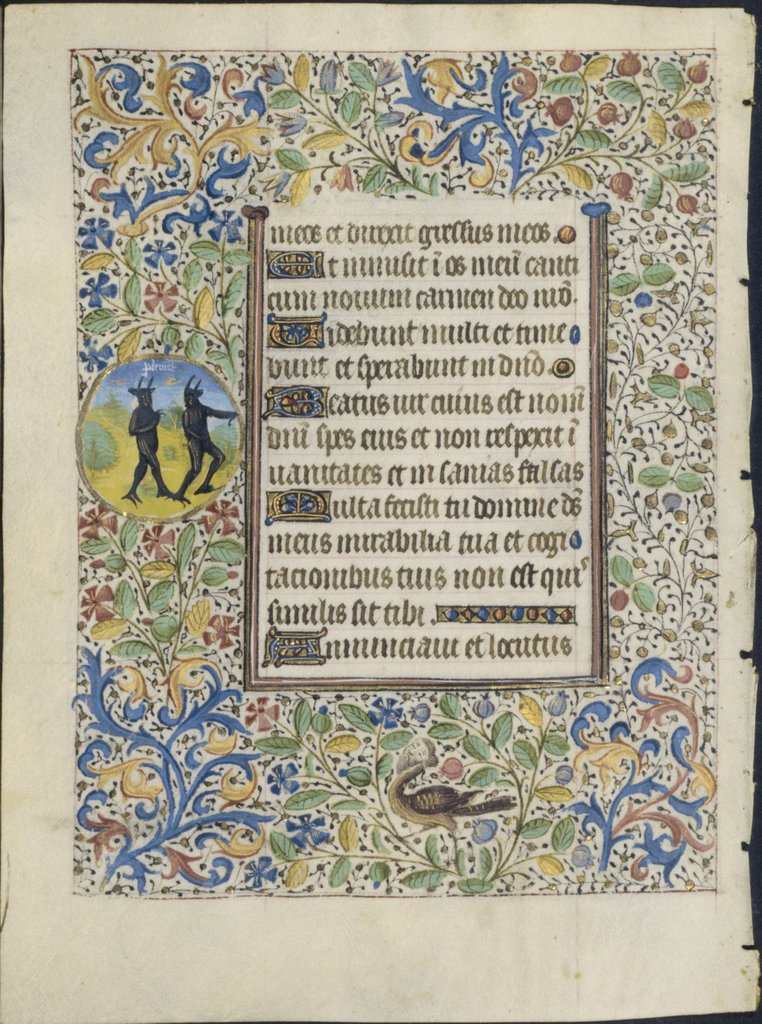 meos et direxit gressus meos.
Et inmisit i os meū canti
cum nouum carmen deo nrō.
Uidebunt multi et time
bunt et sperabunt in dnō.
Beatus uir cuius est nom̄
dnī spes eius et non respexit ī
uanitates et in sanias falsas
Multa fecisti tu domine ds̄
meus mirabilia tua et cogi
tacionibus tuis non est qui
similis sit tibi.
Annunciaui et locutus